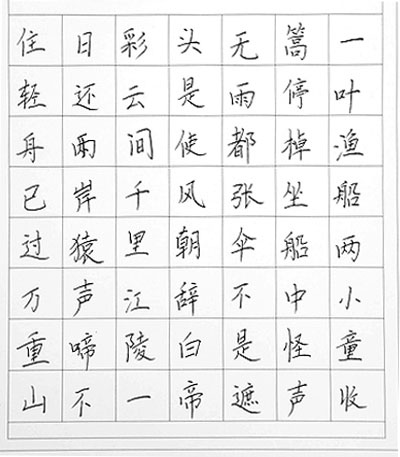 一叶渔船两小童收
篙停棹坐船中怪声
无雨都张伞不是遮
头是使风朝辞白帝
彩云间千里江陵一
日还两岸猿声啼不
住轻舟已过万重山